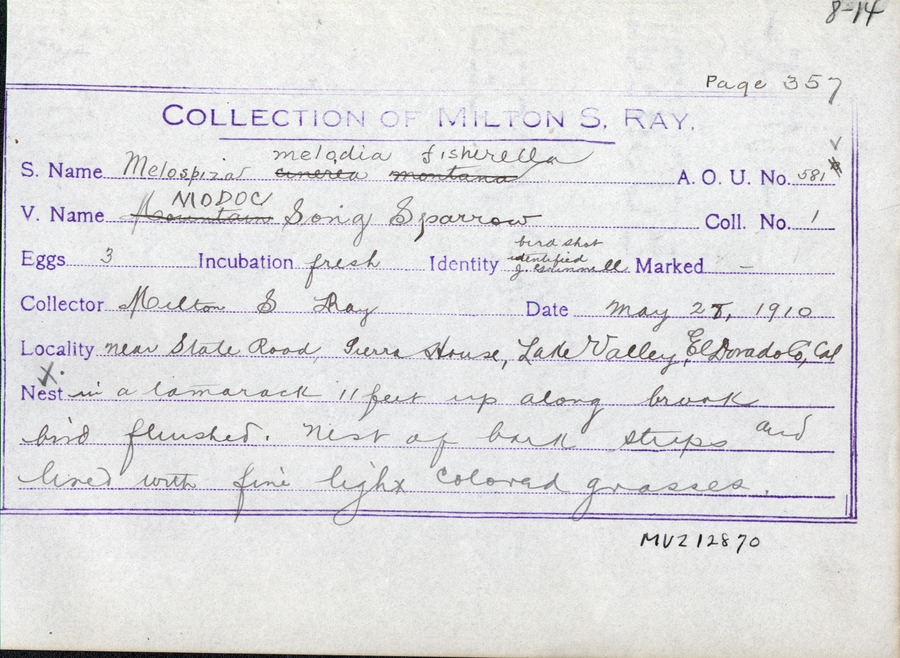 8-14
Page 357
COLLECTION OF MILTON S. RAY.
melodia fisherella
S. Name Melospiza cinerea montana A. O. U. No. 581
MODOC
V. Name Mountain Song Sparrow Coll. No. 1
bird shot
identified
Eggs 3 Incubation fresh Identity J. Grinnell Marked –
Collector Milton S Ray Date May 28, 1910
Locality near State Road, Sierra House, Lake Valley, El Dorado Co, Cal
X.
Nest in a tamarack 11 feet up along brook
bird flushed. Nest of bark strips and
lined with fine light colored grasses.
MVZ 12870